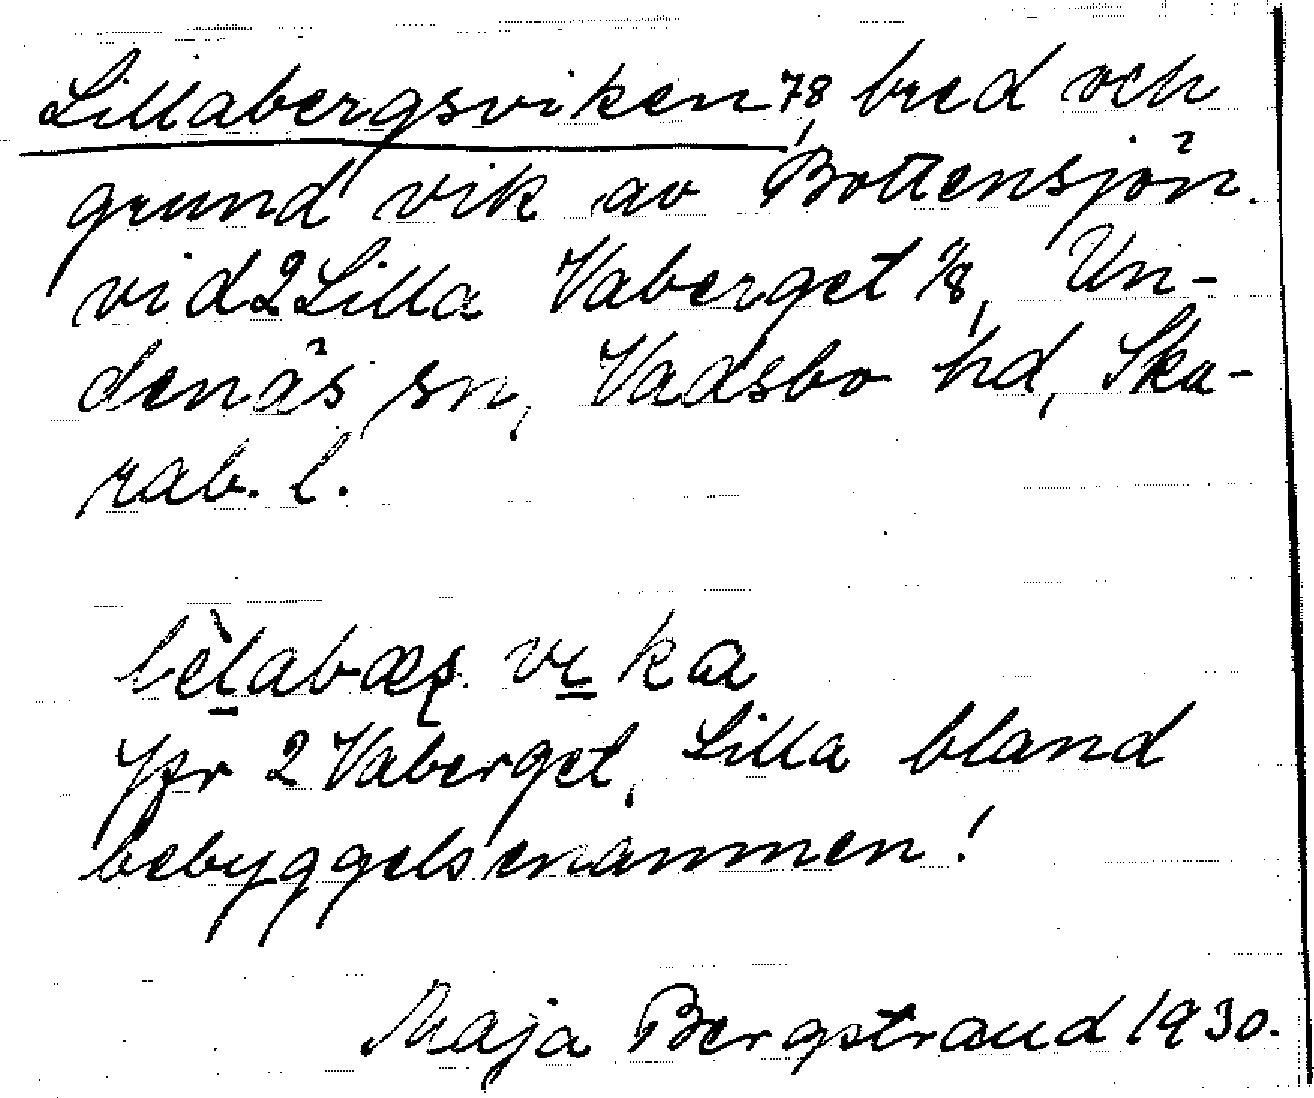 Lillabergsviken 78, bred och
grund vik av Bottensjön
vid 2 Lilla Vaberget 78, Un-
denäs sn, Vadsbo hd, Ska-
rab. l.
Jfr 2 Vaberget, Lilla bland
bebyggelsenamnen!
Maja Bergstrand 1930.